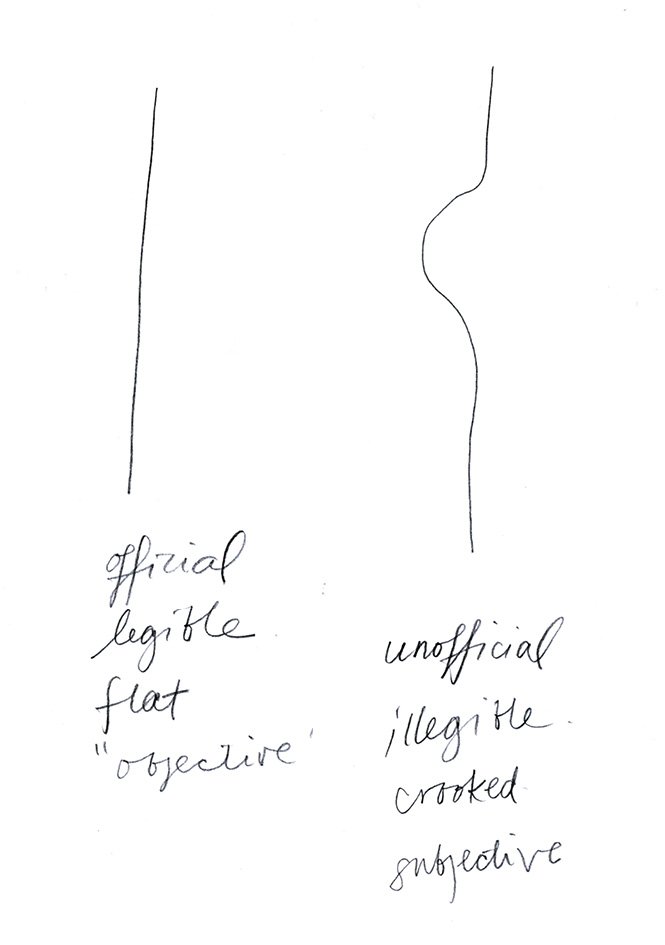 official
legible
flat
"objective"
unofficial
illegible
crooked
subjective